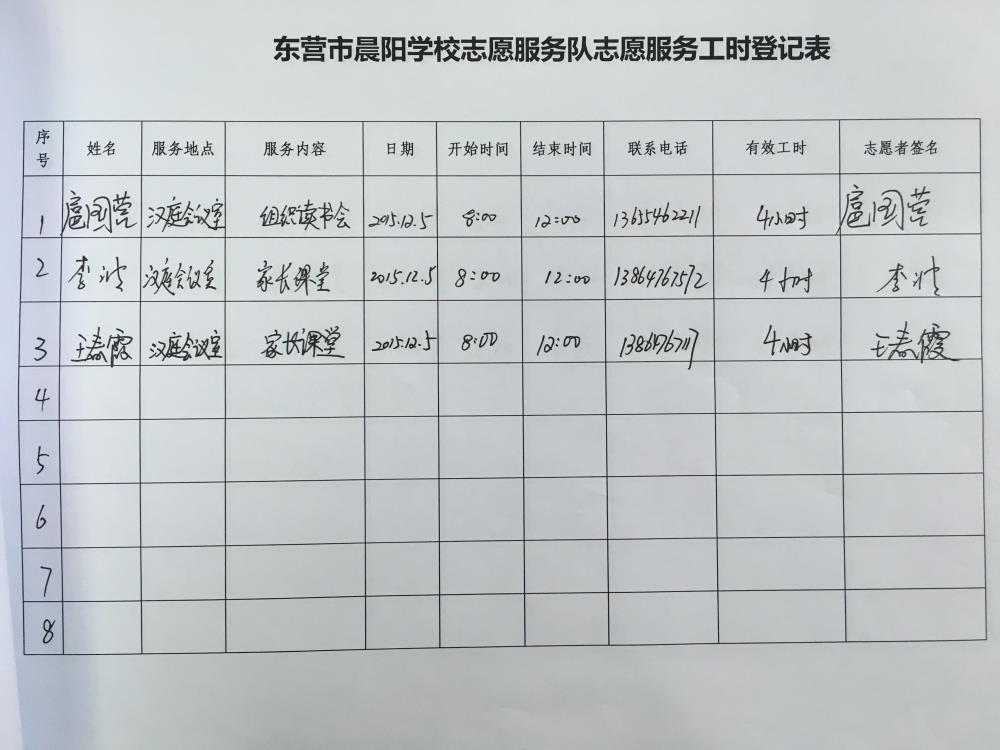 东营市晨阳学校志愿服务队志愿服务工时登记表
序号 姓名 服务地点 服务内容 日期 开始时间 结束时间 联系电话 有效工时 志愿者签名
1 扈国营 汉庭会议室 组织读书会 2015.12.5 8:00 12:00 13655462211 4小时 扈国营
2 李 汉庭会议室 家长课堂 2015.12.5 8:00 12:00 13864767572 4小时 李
3 王春霞 汉庭会议室 家长课堂 2015.12.5 8:00 12:00 4小时 王春霞
4
5
6
7
8